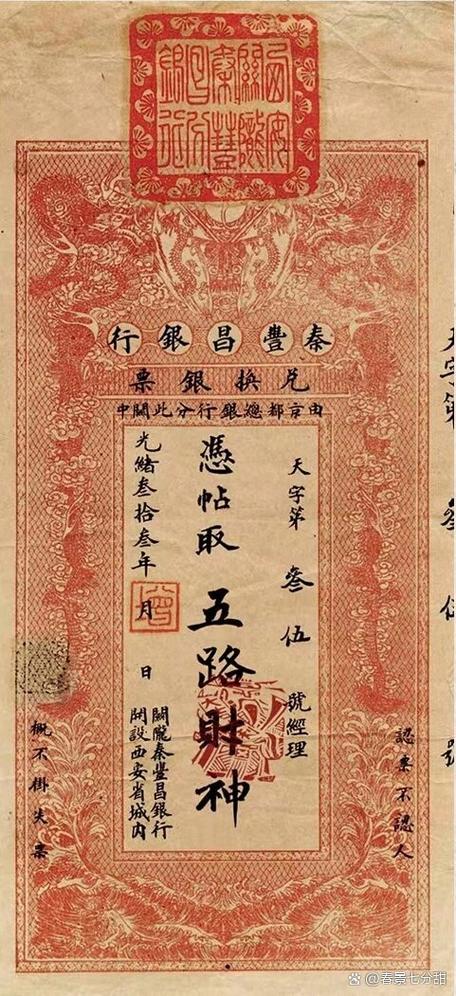 西安關隴秦豐昌分銀行
秦豐昌銀行
兌換銀票
由京都總銀行分此關中
天字第叁伍號經理
憑帖取五路財神
光緒叁拾叁年月日
關隴秦豐昌銀行
開設西安省城内
認票不認人
概不掛失票
@春景七分甜